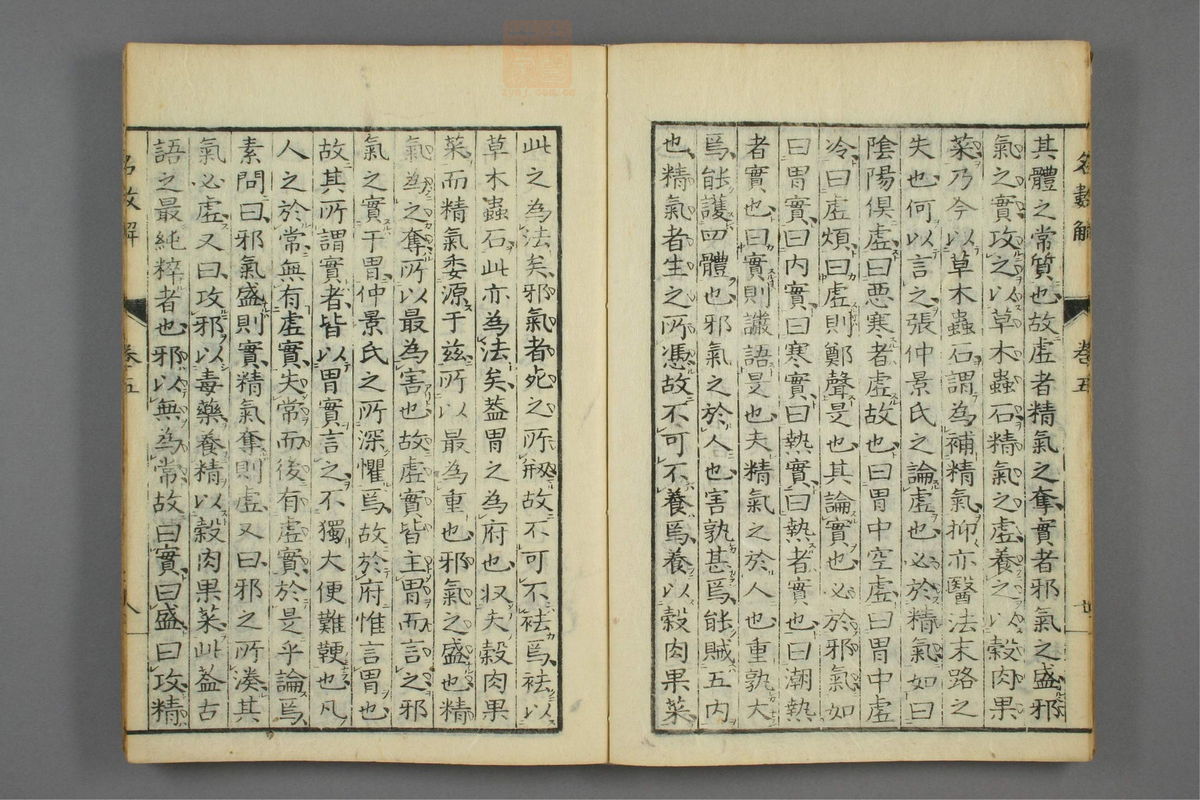 名數解　卷五
其體之常質也故虛者精氣之奪實者邪氣之盛邪
氣之實攻之以草木蟲石精氣之虛養之以穀肉果
菜乃今以草木蟲石謂為補精氣抑亦醫法末路之
失也何以言之張仲景氏之論虛也必於精氣如曰
陰陽俱虛曰惡寒者虛故也曰胃中空虛曰胃中虛
冷曰虛煩曰虛則鄭聲是也其論實也必於邪氣如
曰胃實曰內實曰寒實曰熱實曰熱者實也曰潮熱
者實也曰實則讝語是也夫精氣之於人也重孰大
焉能護四體也邪氣之於人也害孰甚焉能賊五內
也精氣者生之所憑故不可不養焉養以穀肉果菜
此之為法矣邪氣者死之所故不可不祛焉祛以
草木蟲石此亦為法矣蓋胃之為府也収夫穀肉果
菜而精氣委源于茲所以最為重也邪氣之盛也精
氣為之奪所以最為害也故虛實皆主胃而言之邪
氣之實干胃仲景氏之所深懼焉故於府惟言胃也
故其所謂實者皆以胃實言之不獨大便難鞕也凡
人之於常無有虛實失常而後有虛實於是乎論焉
素問曰邪氣盛則實精氣奪則虛又曰邪之所湊其
氣必虛又曰攻邪以毒藥養精以穀肉果菜此蓋古
語之最純粹者也邪以無為常故曰實曰盛曰攻精
名數解　卷五